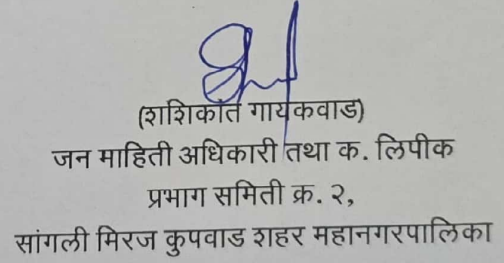 (शशिकांत गायकवाड)
जन माहिती अधिकारी तथा क. लिपीक
प्रभाग समिती क्र. २,
सांगली मिरज कुपवाड शहर महानगरपालिका